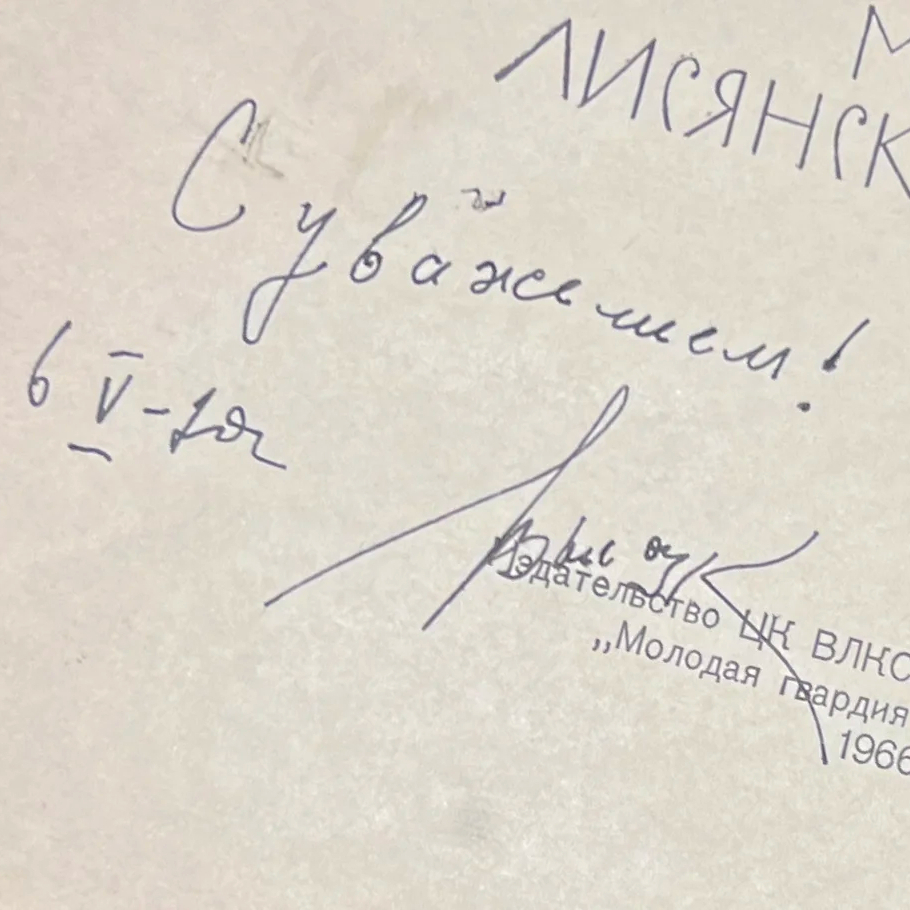 М
ЛИСЯНСК
С уважением!
6 V-
Издательство ЦК ВЛКС
„Молодая гвардия
1966